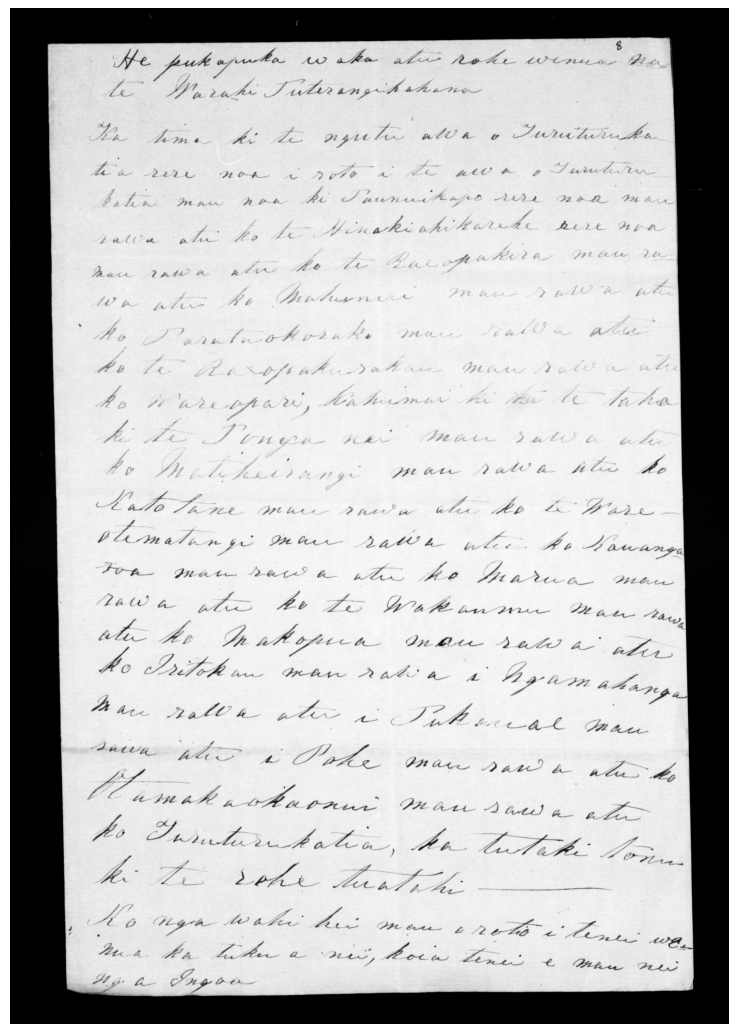 8
He pukapuka waka atu rohe wenua na
te Waraki Puterangikahana
Ka tima ki te ngutu awa o Turuturuka
tia rere noa i roto i te awa o Turuturu
katia mau noa ki Paunuikapo rere noa mau
rawa atu ko te Hinakiahikareke rere noa
mau rawa atu ko te Raeopakira mau ra
wa atu ko Mahunui mau rawa atu
ko Parataokorako mau rawa atu
ko te Raeopakurakau mau rawa atu
ko Wareopari, kahumai ki te taha
ki te Tonga nei mau rawa atu
ko Matiheirangi mau rawa atu ko
Katotane mau rawa atu ko te Ware-
otematangi mau rawa atu ko Kauanga
roa mau rawa atu ko Marua mau
rawa atu ko te Wakaumu mau rawa
atu ko Makopua mau rawa atu
ko Iritokau mau rawa i Ngamahanga
mau rawa atu i Pukauae mau
rawa atu i Pohe mau rawa atu ko
Otamakaokaonui mau rawa atu
ko Turuturukatia, ka tutaki tonu
ki te rohe tuatahi
Ko nga wahi hei mau o roto i tenei we
nua ka tuku a nei, koia tenei e mau nei
nga Ingoa